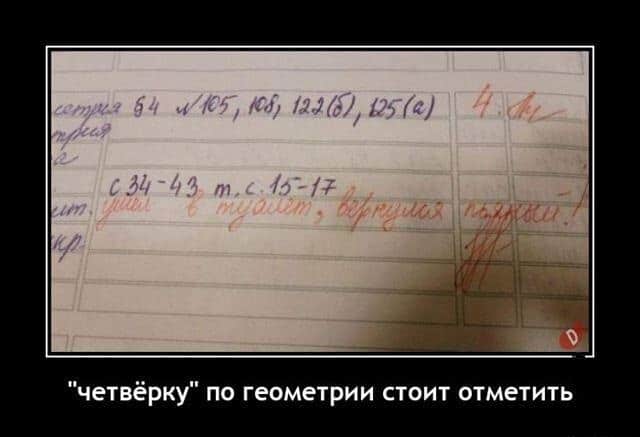 етрия §4 №105, 108, 122(б), 125(а) 4.
трия
а
с 34-43 т.с. 15-17
ит. ушёл в туалет, вернулся пьяный!
кр.
D
"четвёрку" по геометрии стоит отметить